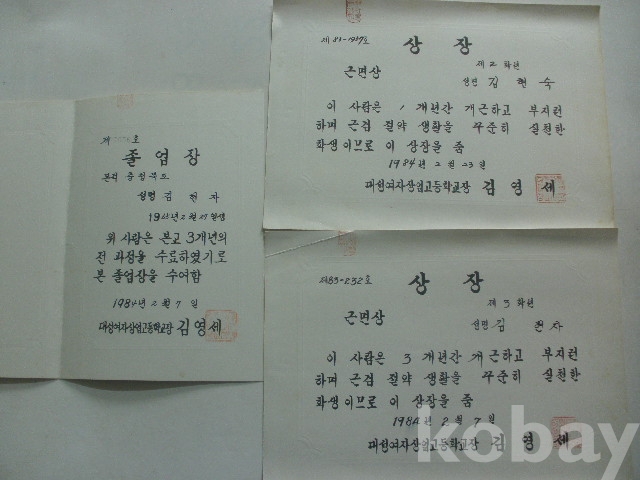 제 호
졸업장
본적 충청북도
성명 김 천 자
위 사람은 본교 3개년의
전 과정을 수료하였기로
본 졸업장을 수여함
1984년 2월 7일
대성여자상업고등학교장 김영세
제83-1957호
상장
제2학년
근면상
성명 김 현 숙
이 사람은 1개년간 개근하고 부지런
하며 근검 절약 생활을 꾸준히 실천한
학생이므로 이 상장을 줌
1984년 2월 23일
대성여자상업고등학교장 김영세
제83-1232호
상장
제3학년
근면상
성명 김 천 자
이 사람은 3개년간 개근하고 부지런
하며 근검 절약 생활을 꾸준히 실천한
학생이므로 이 상장을 줌
1984년 2월 7일
대성여자상업고등학교장 김영세
kobay